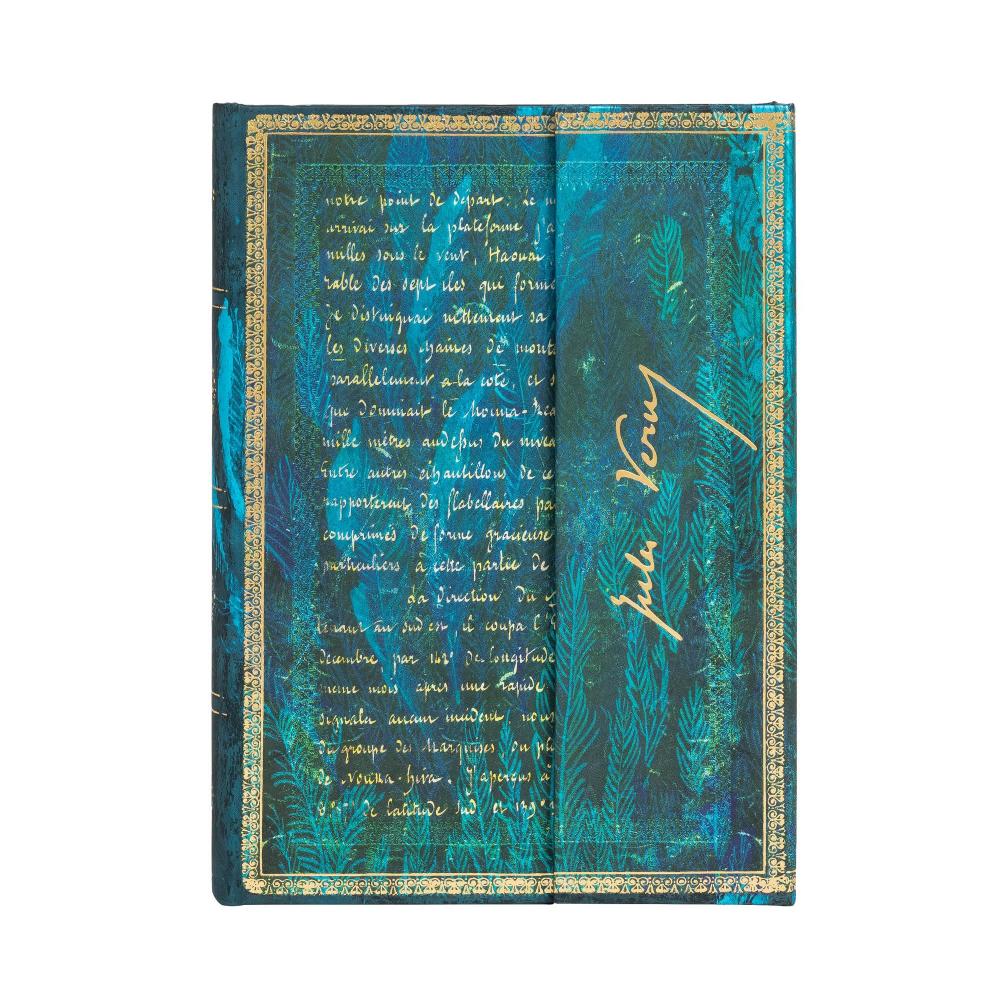 notre point de départ. Le m
arrivai sur la plateforme j'a
milles sous le vent, Haouai
rable des sept iles qui forme
Je distinguai nettement sa
les diverses chaines de monts
parallelement a la cote, et s
que dominait le Mouna-Rea
mille mètres audessus du nivea
Entre autres échantillons de ce
rapporterent des flabellaires pa
comprimés de forme gracieuse
particuliers à cette partie de
La direction du
tenant au sud est, il coupa l'E
decembre, par 142° de longitude
meme mois après une rapide
signala aucun incident, nous
du groupe des Marquises. ou pl
de Nouka-hiva. J'aperçus à
8° 5' de latitude sud et 139°
Jules Verne